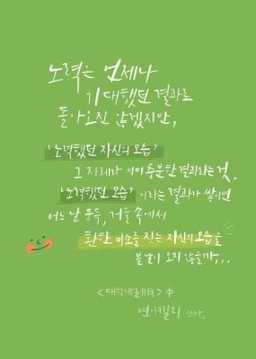 노력은 언제나
기대했던 결과로
돌아오진 않겠지만,
'노력했던 자신의 모습'
그 자체가 이미 충분한 결과라는 것.
'노력했던 모습' 이라는 결과가 쌓이면
어느 날 문득, 거울 속에서
환한 미소를 짓는 자신의 모습을
보게 되지 않을까...
中
쓰다,